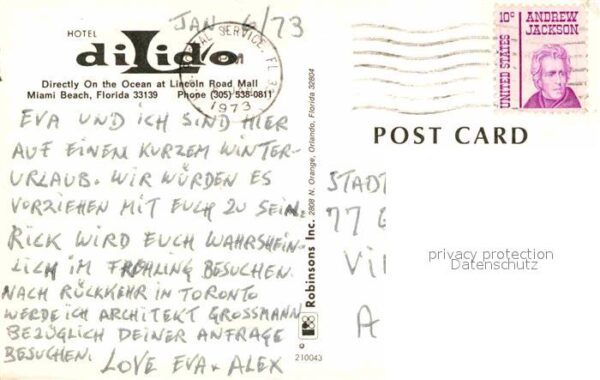 JAN 6/73
HOTEL
diLido
Directly On the Ocean at Lincoln Road Mall
Miami Beach, Florida 33139 Phone (305) 538-0811
1973
EVA UND ICH SIND HIER
AUF EINEM KURZEM WINTER-
URLAUB. WIR WÜRDEN ES
VORZIEHEN MIT EUCH ZU SEIN.
RICK WIRD EUCH WAHRSHEIN-
LICH IM FRÜHLING BESUCHEN.
NACH RÜCKKEHR IN TORONTO
WERDE ICH ARCHITEKT GROSSMANN
BEZÜGLICH DEINER ANFRAGE
BESUCHEN. LOVE EVA + ALEX
Robinsons Inc. 2808 N. Orange, Orlando, Florida 32804
210043
10c ANDREW
JACKSON
UNITED STATES
POST CARD
STADT
77
VIL
A
privacy protection
Datenschutz